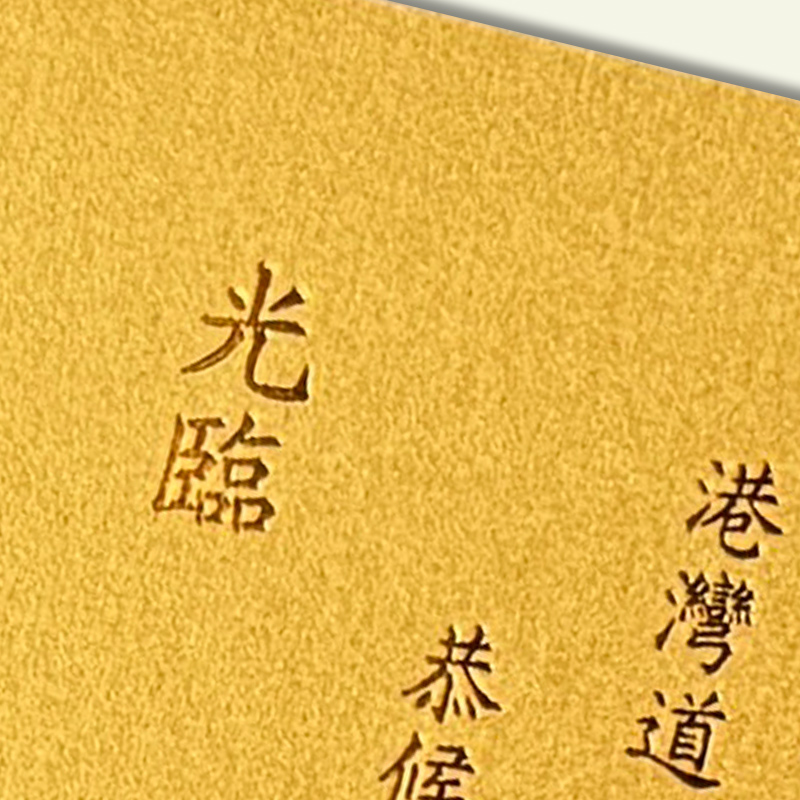 港灣道
恭候
光臨